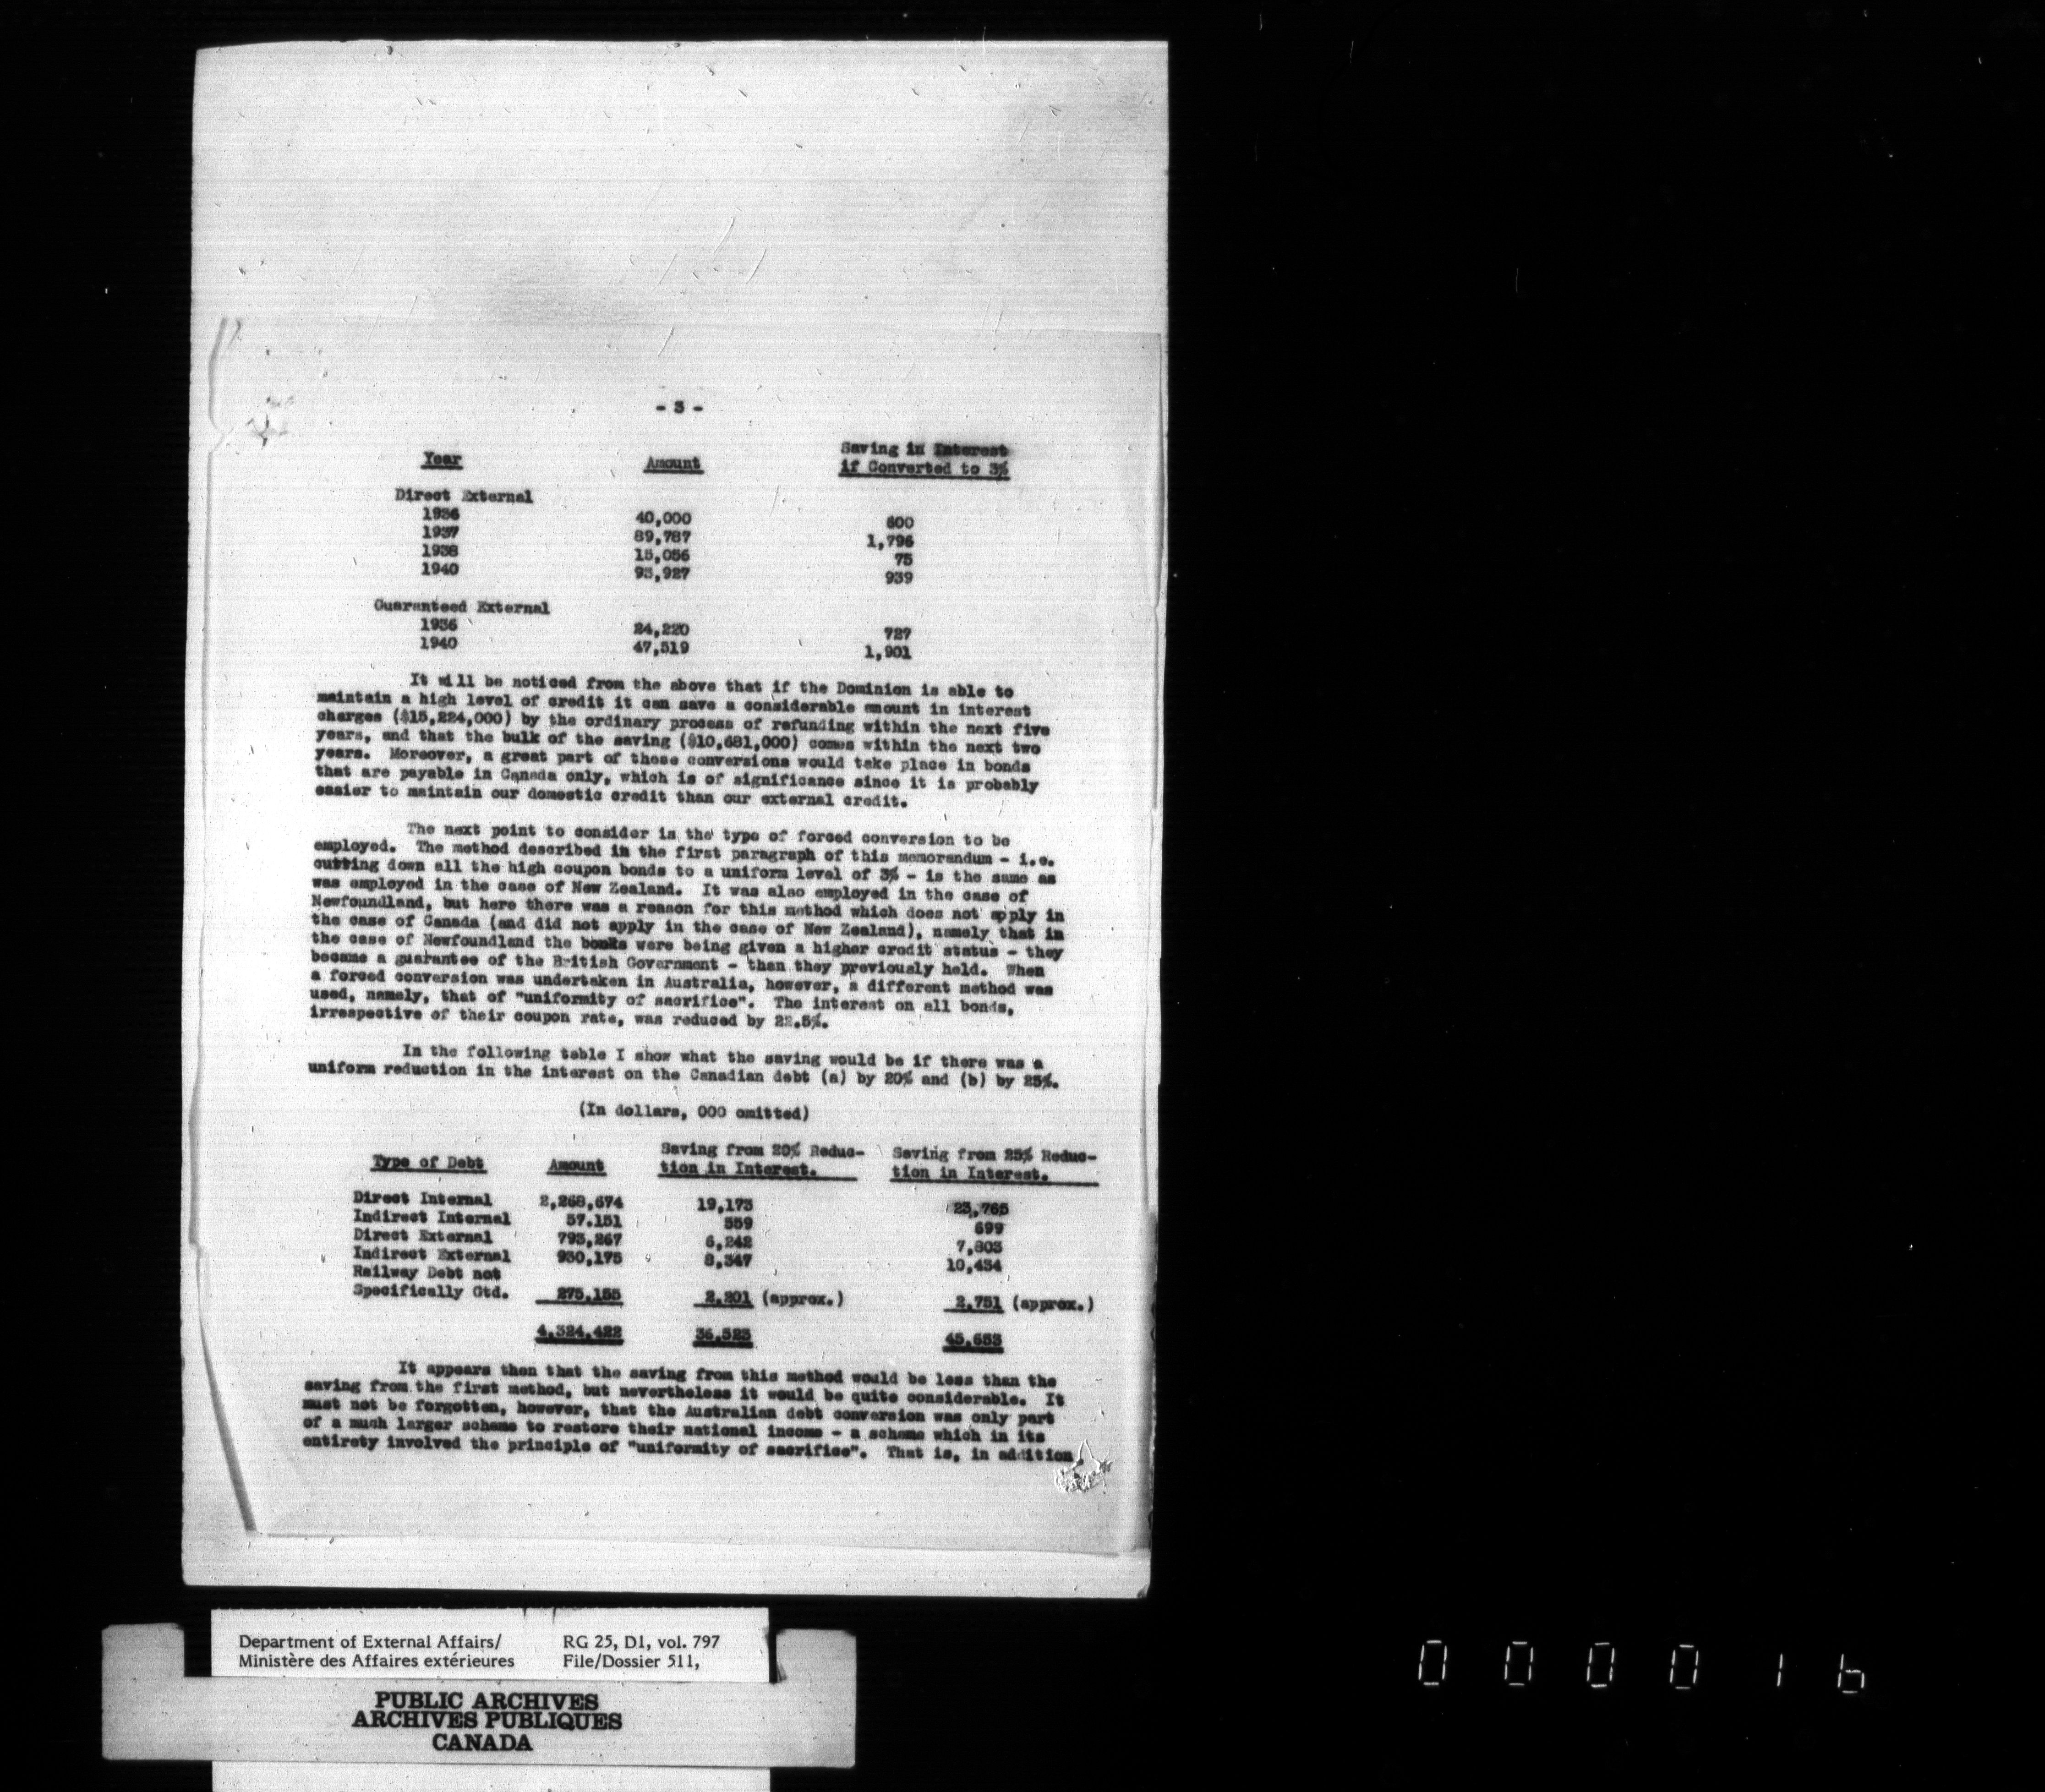 - 3 -
Year Amount Saving in Interest
if Converted to 3%
Direct External
1936 40,000 600
1937 89,787 1,796
1938 15,056 75
1940 93,927 939
Guaranteed External
1936 24,220 727
1940 47,519 1,901
It will be noticed from the above that if the Dominion is able to
maintain a high level of credit it can save a considerable amount in interest
charges ($15,224,000) by the ordinary process of refunding within the next five
years, and that the bulk of the saving ($10,681,000) comes within the next two
years. Moreover, a great part of these conversions would take place in bonds
that are payable in Canada only, which is of significance since it is probably
easier to maintain our domestic credit than our external credit.
The next point to consider is the type of forced conversion to be
employed. The method described in the first paragraph of this memorandum - i.e.
cutting down all the high coupon bonds to a uniform level of 3% - is the same as
was employed in the case of New Zealand. It was also employed in the case of
Newfoundland, but here there was a reason for this method which does not apply in
the case of Canada (and did not apply in the case of New Zealand), namely that in
the case of Newfoundland the were being given a higher credit status - they
became a guarantee of the British Government - than they previously held. When
a forced conversion was undertaken in Australia, however, a different method was
used, namely, that of "uniformity of sacrifice". The interest on all bonds,
irrespective of their coupon rate, was reduced by 22.5%.
In the following table I show what the saving would be if there was a
uniform reduction in the interest on the Canadian debt (a) by 20% and (b) by 25%.
(In dollars, 000 omitted)
Type of Debt Amount Saving from 20% Reduc- Saving from 25% Reduc-
tion in Interest. tion in Interest.
Direct Internal 2,268,674 19,173 23,765
Indirect Internal 57.151 559 699
Direct External 793,267 6,242 7,803
Indirect External 930,175 8,347 10,434
Railway Debt not
Specifically Gtd. 275,155 2,201 (approx.) 2,751 (approx.)
4,324,422 36,523 45,653
It appears then that the saving from this method would be less than the
saving from the first method, but nevertheless it would be quite considerable. It
must not be forgotten, however, that the Australian debt conversion was only part
of a much larger scheme to restore their national income - a scheme which in its
entirety involved the principle of "uniformity of sacrifice". That is, in addition
Department of External Affairs/ RG 25, D1, vol. 797
Ministère des Affaires extérieures File/Dossier 511,
PUBLIC ARCHIVES
ARCHIVES PUBLIQUES
CANADA
0 0 0 0 1 6